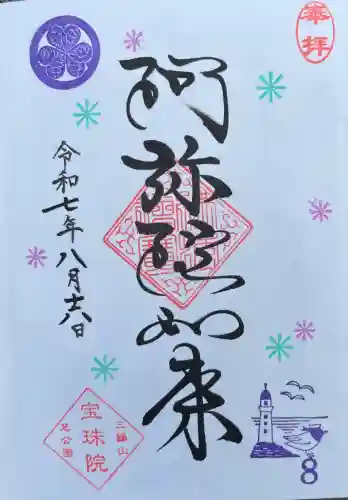 奉拝
阿弥陀如来
令和七年八月十八日
三縁山
宝珠院
芝公園
8